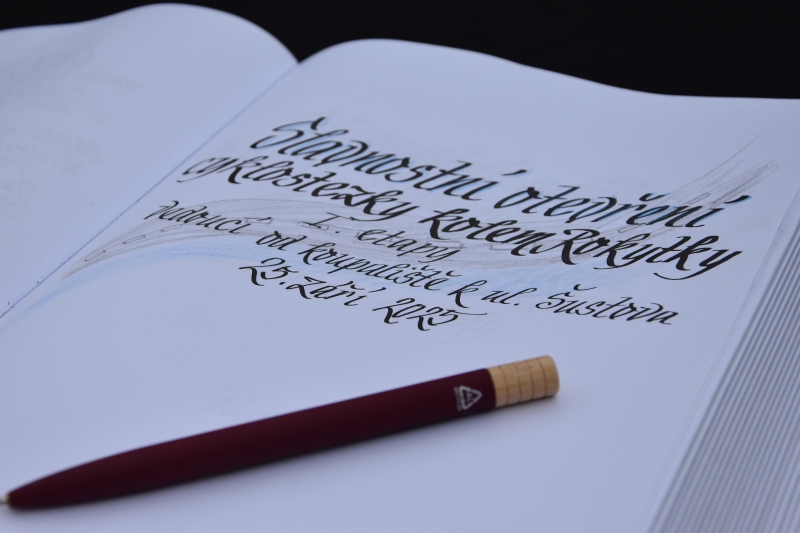 Slavnostní otevření
cyklostezky kolem Rokytky
I. etapy
vedoucí od koupaliště k ul. Šustova
25. září 2025